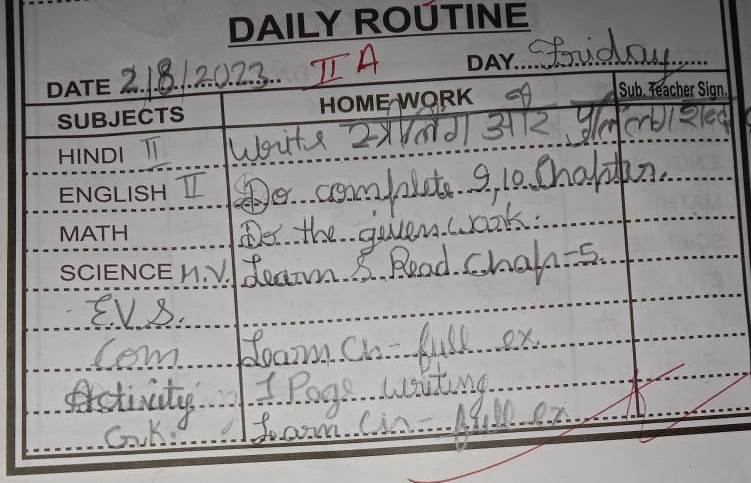 DAILY ROUTINE
DATE 2/8/2023 II A DAY Friday
SUBJECTS HOME WORK Sub. Teacher Sign.
HINDI II Write और
ENGLISH II Do complete 9,10 Chapter.
MATH Do the given work.
SCIENCE M.V. Learn & Read Chap-5.
E.V.S.
Com Learn Ch- full ex.
Activity 1 Page writing
G.K. Learn Ch- full ex